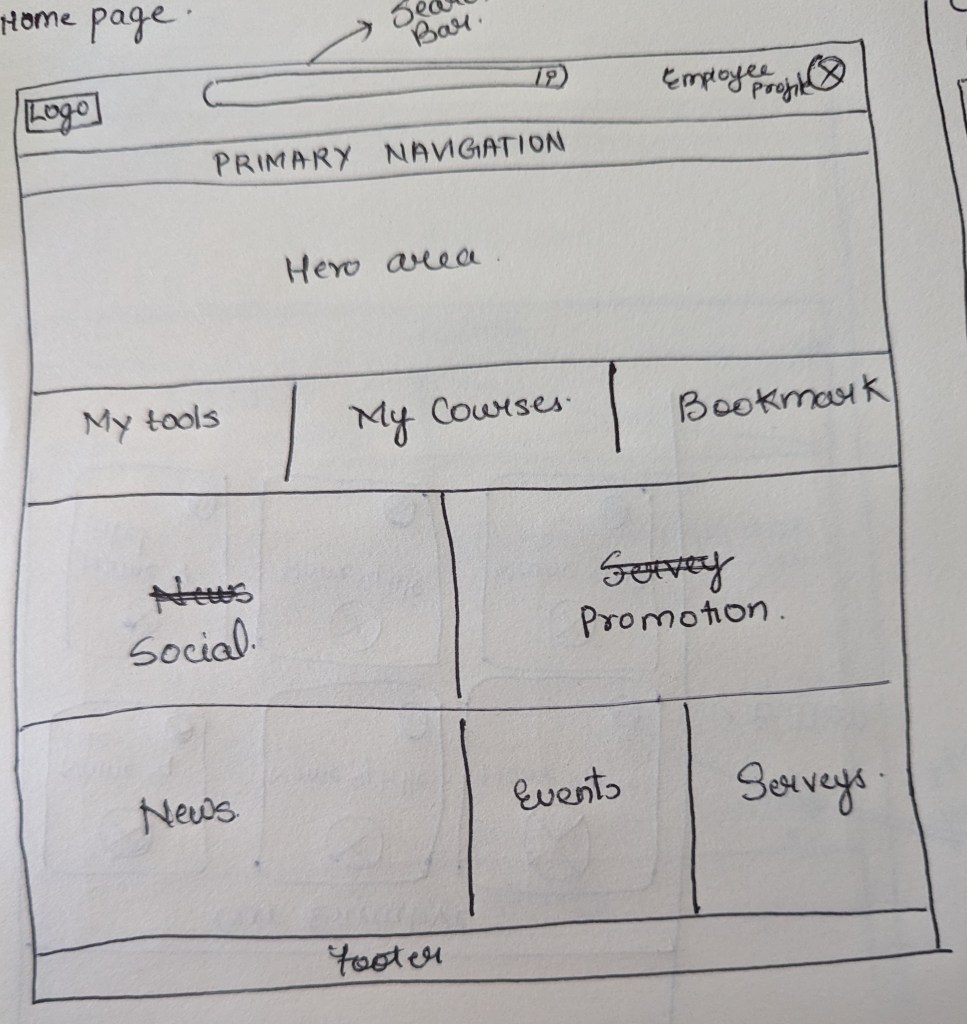 Home page.
Bar.
Logo
Employee
Profile
PRIMARY NAVIGATION
Hero area.
My tools
My Courses.
Bookmark
News
Social.
Servey
Promotion.
News.
Events
Serveys.
footer